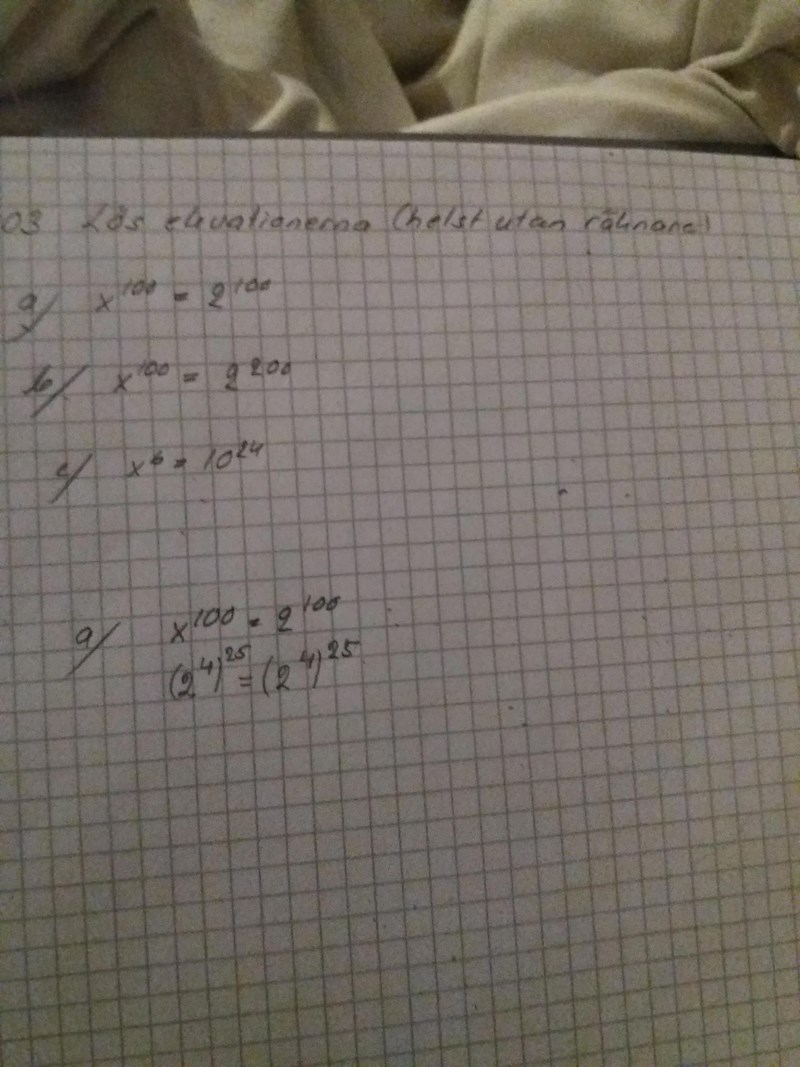 03 Lös ekvationerna (helst utan räknare)
a) x^100 = 2^100
b) x^100 = 2^200
c) x^6 = 10^24
a) x^100 = 2^100
(2^4)^25 = (2^4)^25